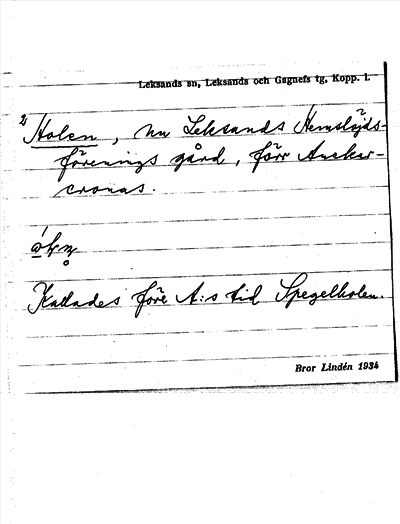 Leksands sn, Leksands och Gagnefs tg, Kopp. l.
2 Holen, nu Leksands Hemslöjds-
förenings gård, förr Ancker-
cronas.
Kallades före A:s tid Spegelholen.
Bror Lindén 1934